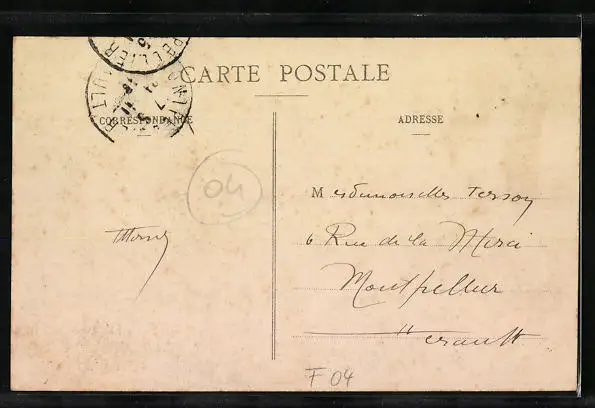 CARTE POSTALE
CORRESPONDANCE
ADRESSE
04
Mesdemoiselles Tersoy
6 Rue de la Merci
Montpellier
Herault
F 04